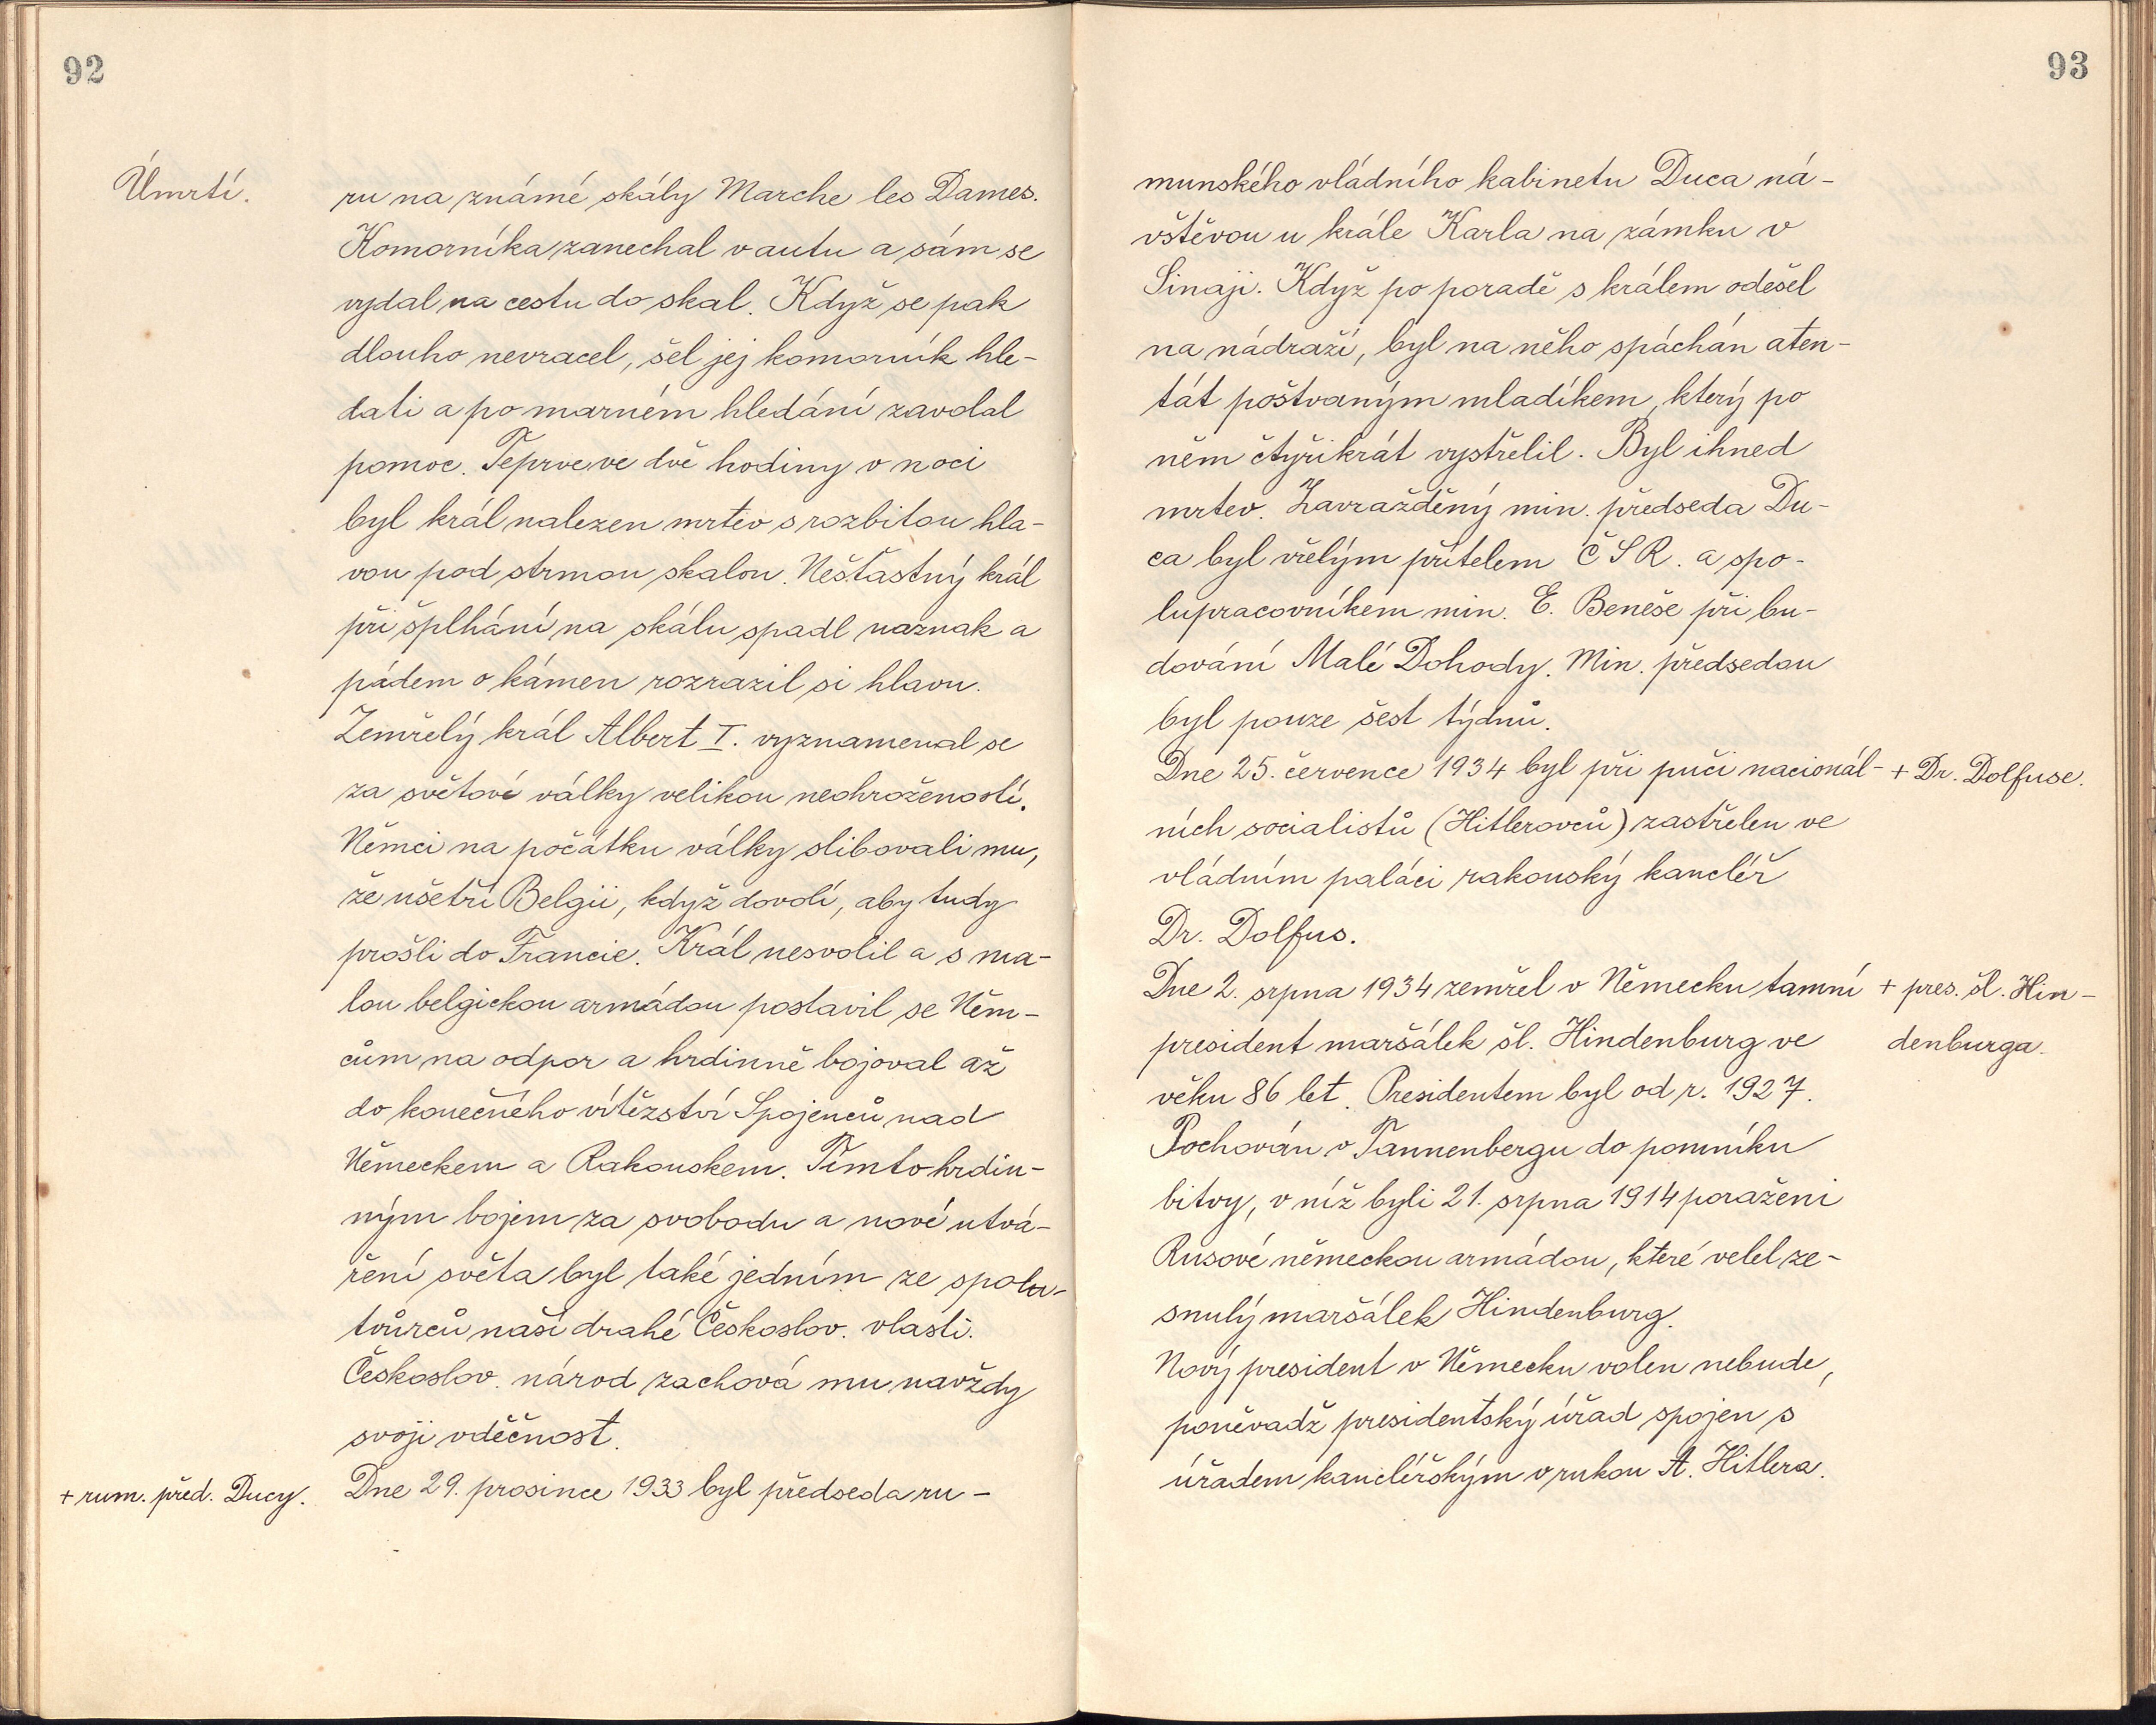 92
Úmrtí.
ru na známé skály Marche les Dames.
Komorníka zanechal v autu a sám se
vydal na cestu do skal. Když se pak
dlouho nevracel, šel jej komorník hle-
dati a po marném hledání zavolal
pomoc. Teprve ve dvě hodiny v noci
byl král nalezen mrtev s rozbitou hla-
vou pod strmou skalou. Nešťastný král
při šplhání na skálu spadl naznak a
pádem o kámen rozrazil si hlavu.
Zemřelý král Albert I. vyznamenal se
za světové války velikou neohrožeností.
Němci na počátku války slibovali mu,
že ušetří Belgii, když dovolí, aby tudy
prošli do Francie. Král nesvolil a s ma-
lou belgickou armádou postavil se Něm-
cům na odpor a hrdinně bojoval až
do konečného vítězství Spojenců nad
Německem a Rakouskem. Tímto hrdin-
ným bojem za svobodu a nové utvá-
ření světa byl také jedním ze spolu-
tvůrců naší drahé Českoslov. vlasti.
Českoslov. národ zachová mu navždy
svoji vděčnost.
+ rum. před. Ducy.
Dne 29. prosince 1933 byl předseda ru-
93
munského vládního kabinetu Duca ná-
vštěvou u krále Karla na zámku v
Sinaji. Když po poradě s králem odešel
na nádraží, byl na něho spáchán aten-
tát poštvaným mladíkem, který po
něm čtyřikrát vystřelil. Byl ihned
mrtev. Zavražděný min. předseda Du-
ca byl vřelým přítelem ČSR. a spo-
lupracovníkem min. E. Beneše při bu-
dování Malé Dohody. Min. předsedou
byl pouze šest týdnů.
Dne 25. července 1934 byl při puči nacionál-
+ Dr. Dolfuse.
ních socialistů (Hitlerovců) zastřelen ve
vládním paláci rakouský kancléř
Dr. Dolfus.
Dne 2. srpna 1934 zemřel v Německu tamní
+ pres. šl. Hin-
president maršálek šl. Hindenburg ve
denburga.
věku 86 let. Presidentem byl od r. 1927.
Pochován v Tannenbergu do pomníku
bitvy, v níž byli 21. srpna 1914 poraženi
Rusové německou armádou, které velel ze-
snulý maršálek Hindenburg.
Nový president v Německu volen nebude,
poněvadž presidentský úřad spojen s
úřadem kancléřským v rukou A. Hitlera.